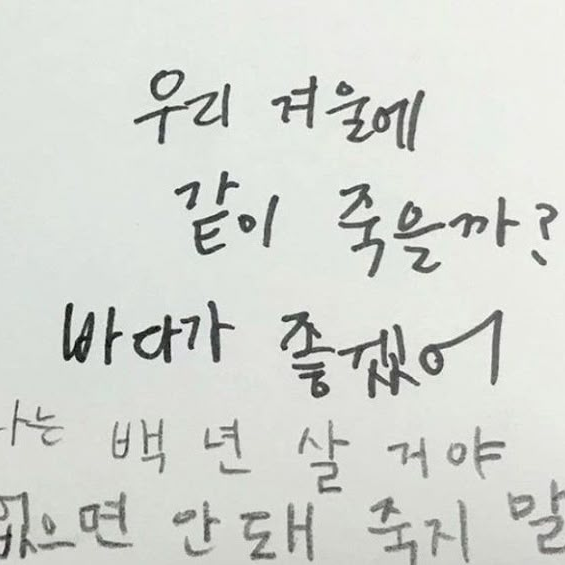 우리 겨울에
같이 죽을까?
바다가 좋겠어
나는 백 년 살 거야
없으면 안 돼 죽지 말